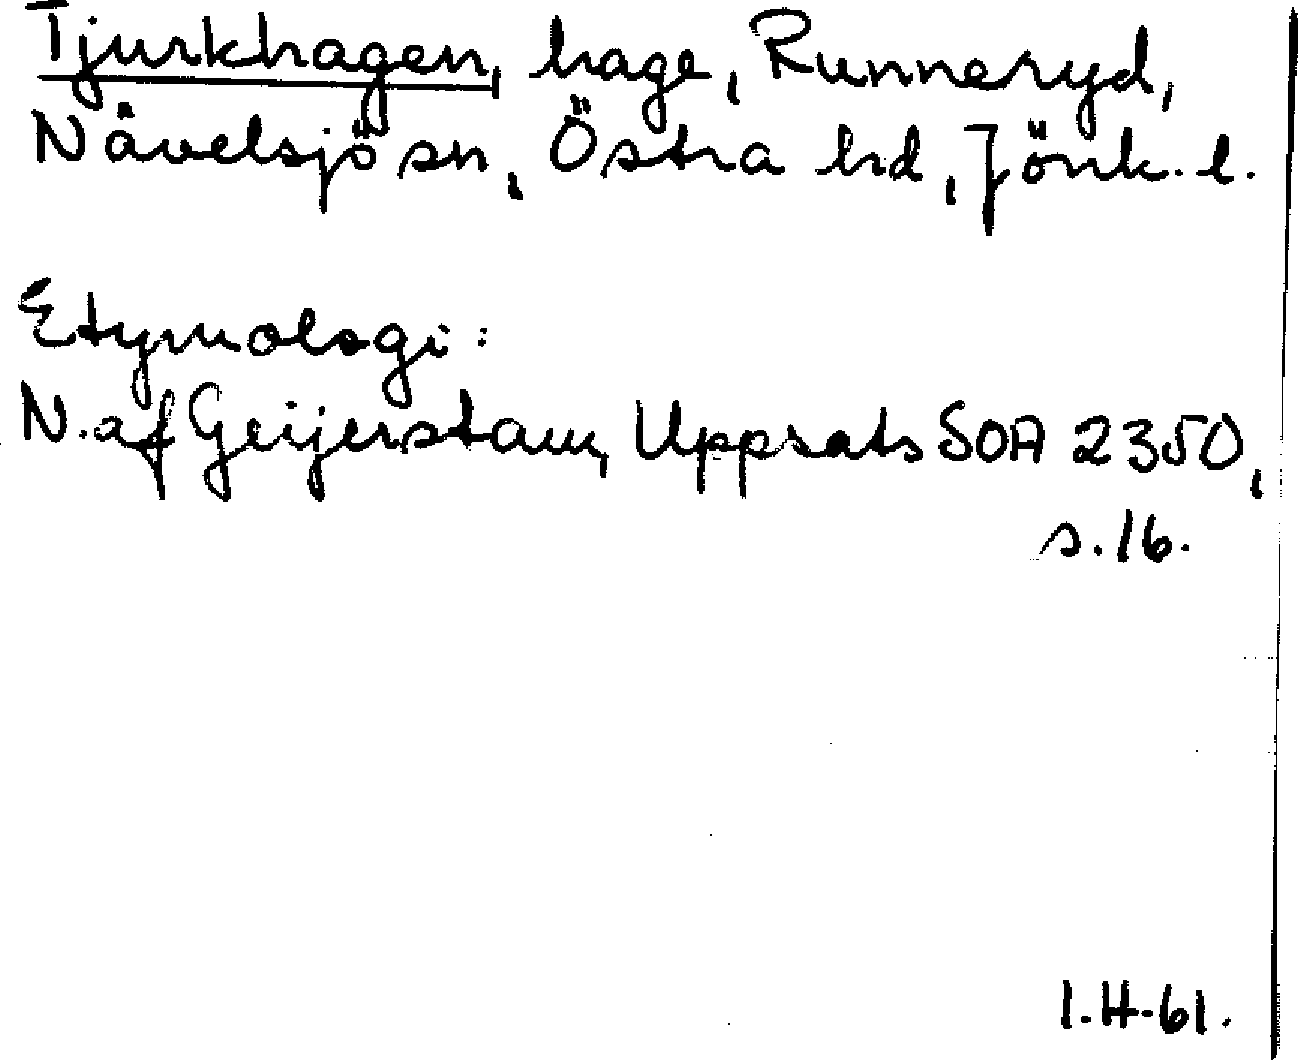 Tjurkhagen, hage, Runneryd,
Nävelsjö sn, Östra hd, Jönk. l.
Etymologi:
N. af Geijerstam, Uppsats SOA 2350,
s. 16.
I.H-61.